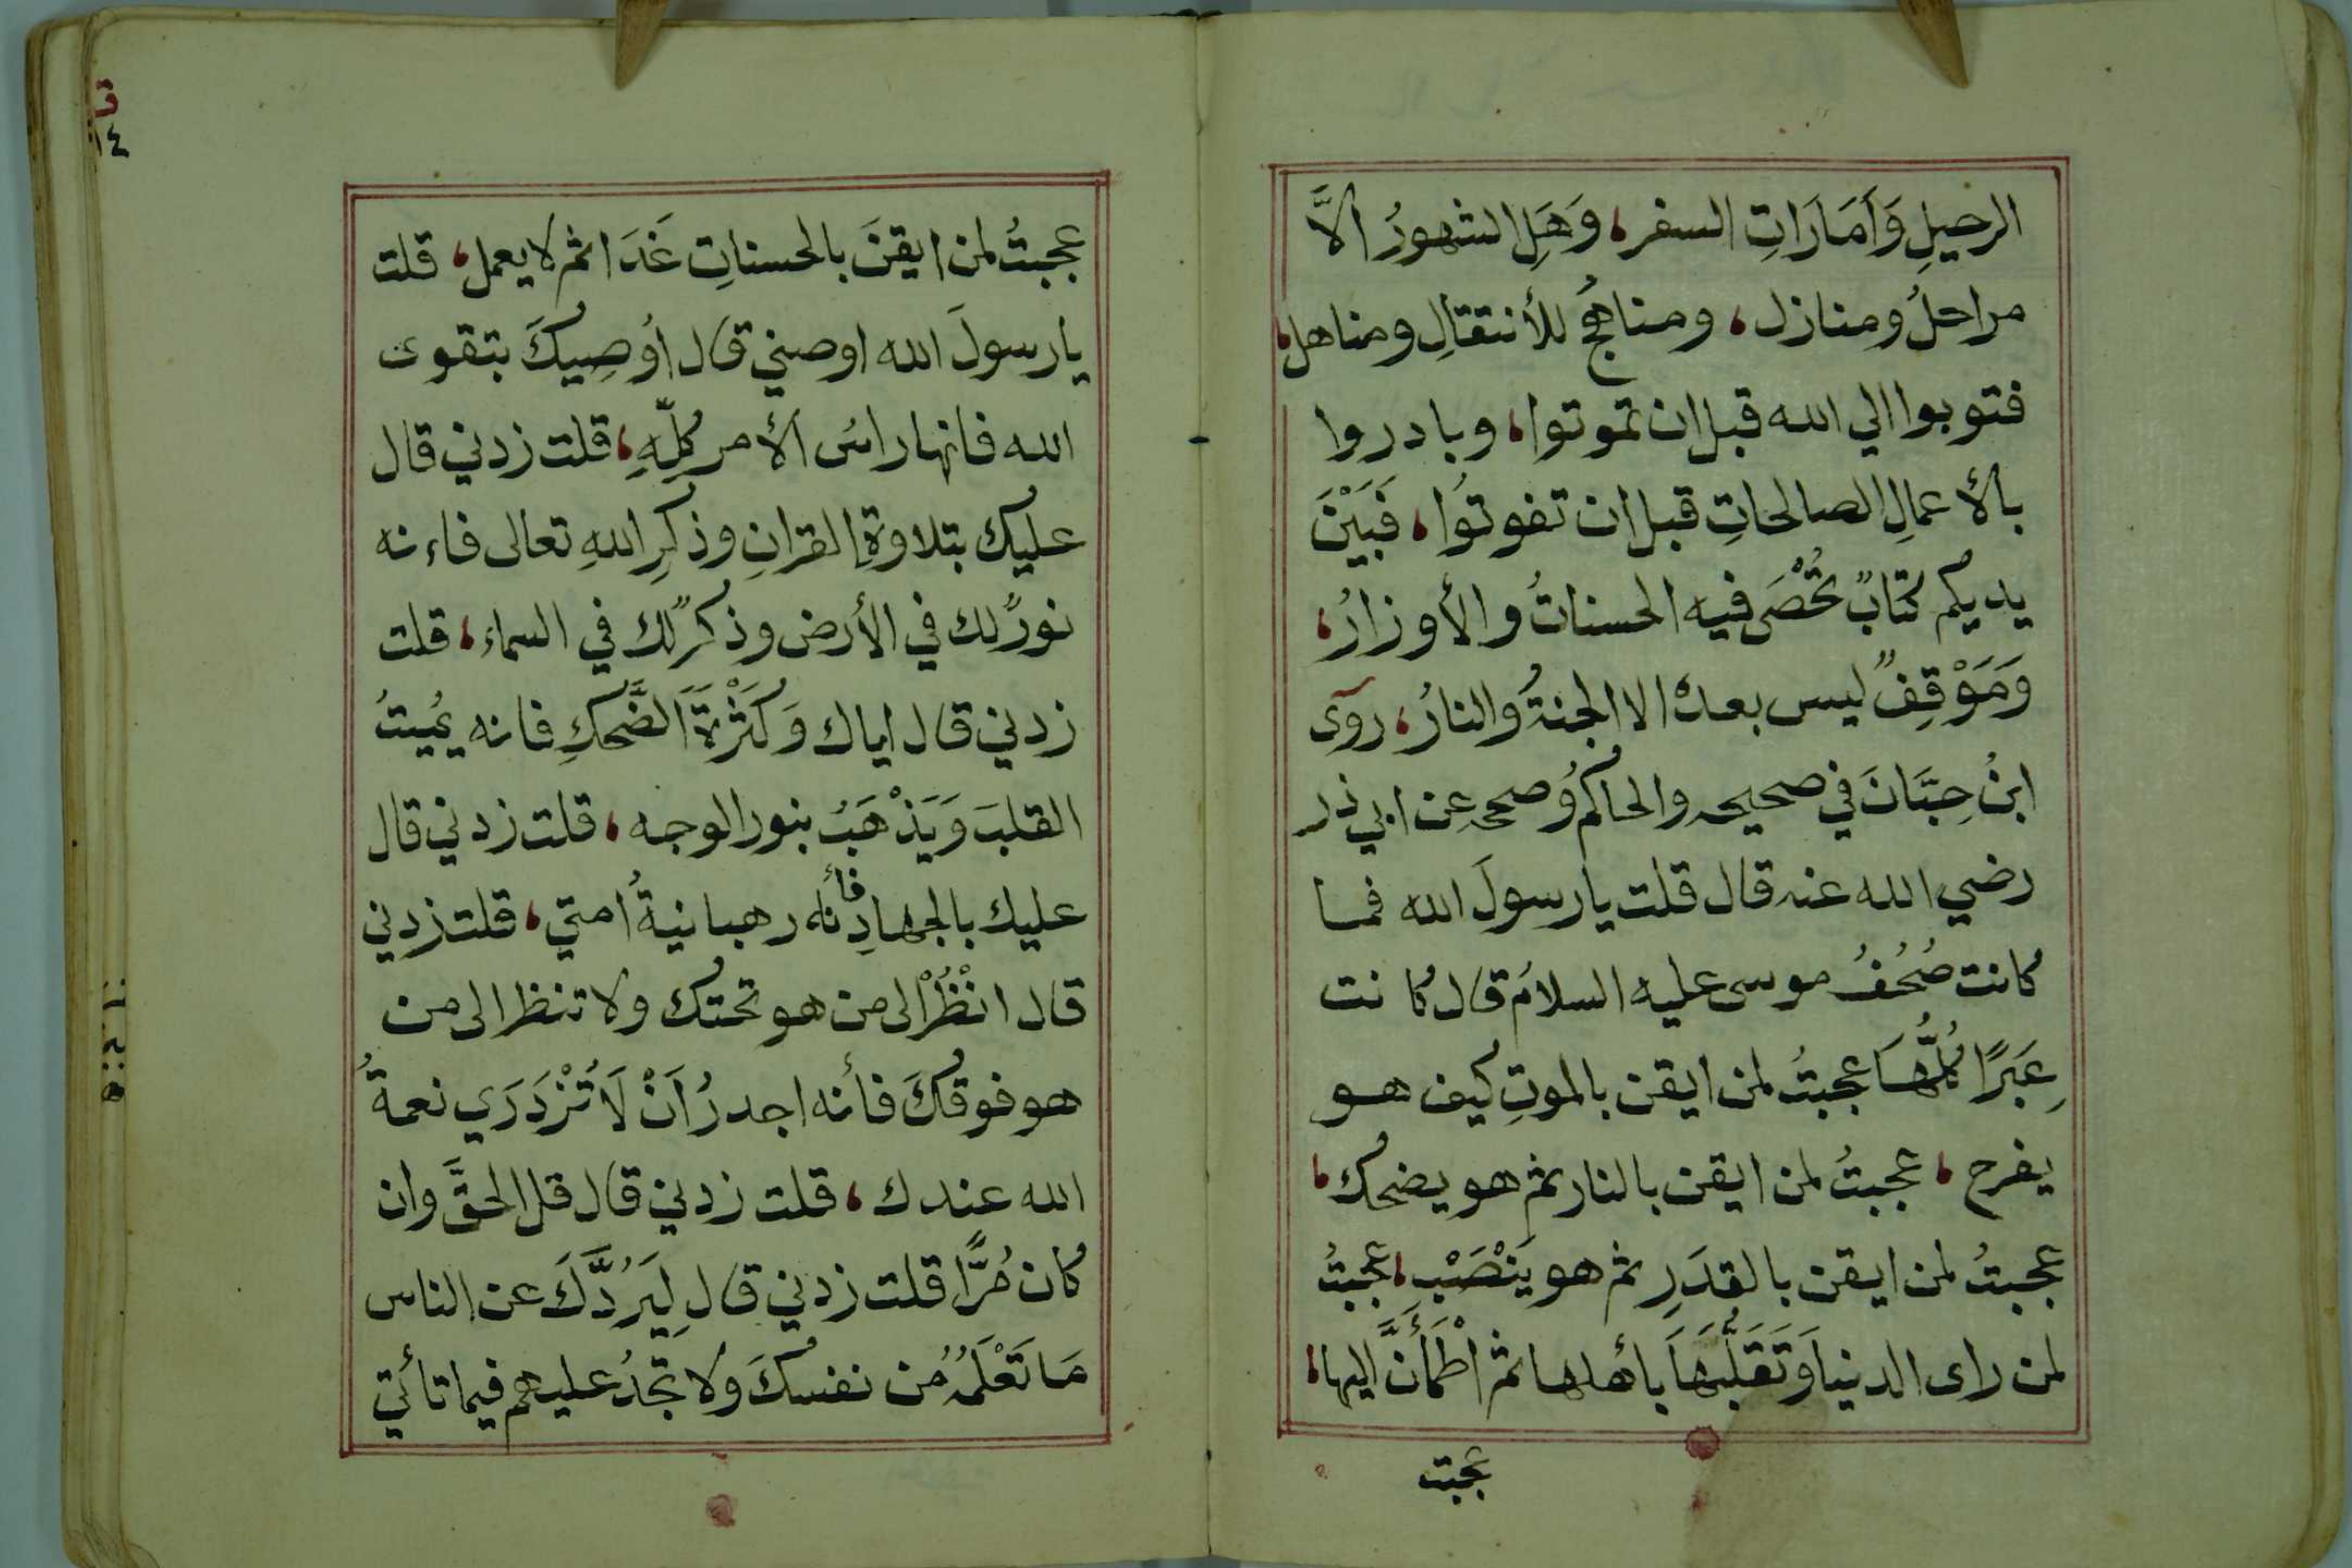 الرحيلِ وَاَمَارَاتِ السفر، وَهَلِ الشهورُ الاَّ
مراحلُ ومنازل، ومناهجُ للأنتقالِ ومناهل،
فتوبوا الي الله قبل ان تموتوا، وبادروا
بالأعمالِ الصالحاتِ قبل ان تفوتوُا، فَبَيْنَ
يديكم كتابٌ تُحْصَى فيه الحسناتُ والأوزارُ،
وَمَوْقِفٌ ليس بعدهُ الا الجنةُ والنارُ، روى
ابنُ حِبَّانَ في صحيحه والحاكمُ وصححه عن ابي ذر
رضي الله عنه قال قلت يا رسولَ الله فما
كانت صُحُفُ موسى عليه السلام قال كانت
عِبَرًا كُلُّهَا عجبتُ لمن ايقن بالموتِ كيف هو
يفرح، عجبتُ لمن ايقن بالنار ثم هو يضحك،
عجبتُ لمن ايقن بالقدَرِ ثم هو يَنْصَبْ، عجبتُ
لمن راى الدنيا وَتَقَلُّبَهَا بأهلها ثم اطْمَأَنَّ اليها،
عجبت
عجبتُ لمن ايقنَ بالحسناتِ غَدَا ثم لا يعمل، قلت
يا رسولَ الله اوصني قال اُوصِيكَ بتقوى
الله فانها راسُ الأمر كلِّهِ، قلت زدني قال
عليك بتلاوةِ القرانِ وذكرِ اللهِ تعالى فاءنه
نورٌ لك في الأرض وذكرٌ لك في السماء، قلت
زدني قال اياك وَكَثْرَةَ الضَّحكِ فانه يُمِيتُ
القلبَ وَيَذْهَبُ بنور الوجه، قلت زدني قال
عليك بالجهادِ فأنه رهبانيةُ امتي، قلت زدني
قال انْظُرْ الى من هو تحتك ولا تنظر الى من
هو فوقكَ فأنه اجدرُ اَنْ لاَ تُزْدَرَي نعمةُ
الله عندك، قلت زدني قال قل الحقَّ وان
كان مُرًّا قلت زدني قال لِيَرُدَّكَ عن الناس
مَا تَعْلَمُهُ من نفسكَ ولا تجدُ عليهم فيما تأتي